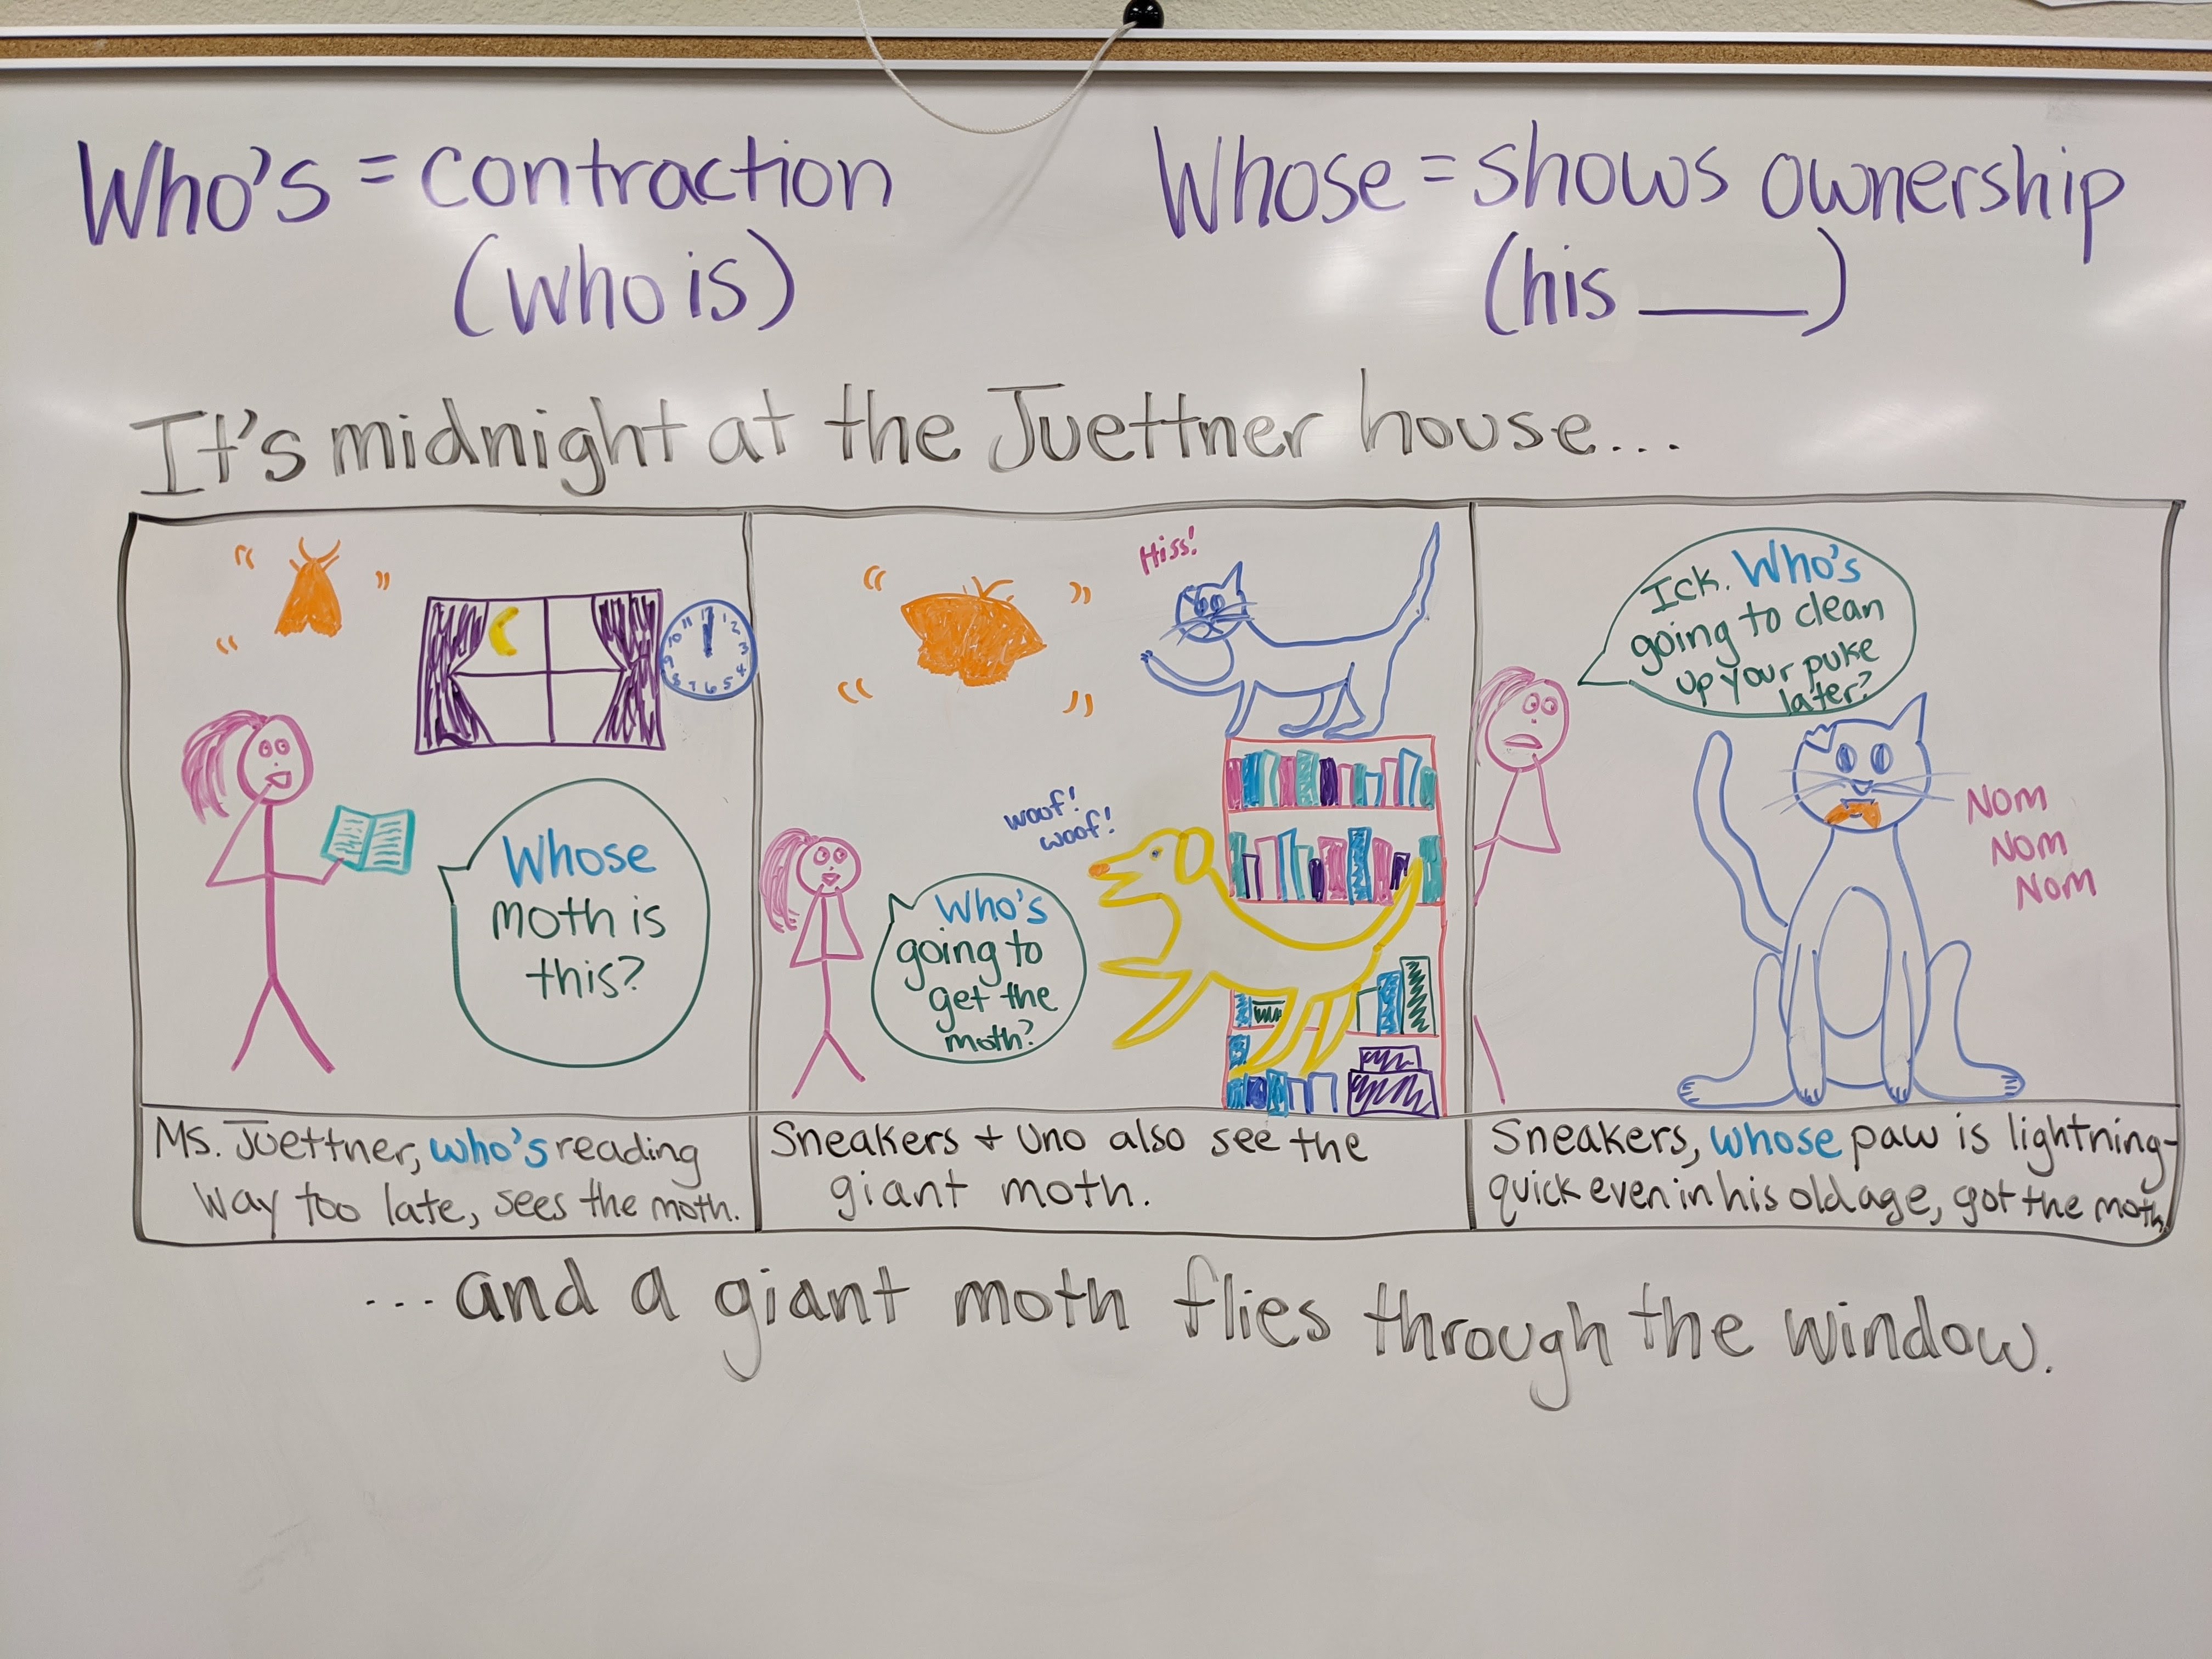 Who's = contraction
(who is)
Whose = shows ownership
(his ____)
It's midnight at the Juettner house...
11 12 1
10 2
9 3
8 4
7 6 5
Whose
moth is
this?
Ms. Juettner, who's reading
way too late, sees the moth.
Hiss!
woof!
woof!
Who's
going to
get the
moth?
Sneakers + Uno also see the
giant moth.
Ick. Who's
going to clean
up your puke
later?
Nom
Nom
Nom
Sneakers, whose paw is lightning-
quick even in his old age, got the moth.
...and a giant moth flies through the window.